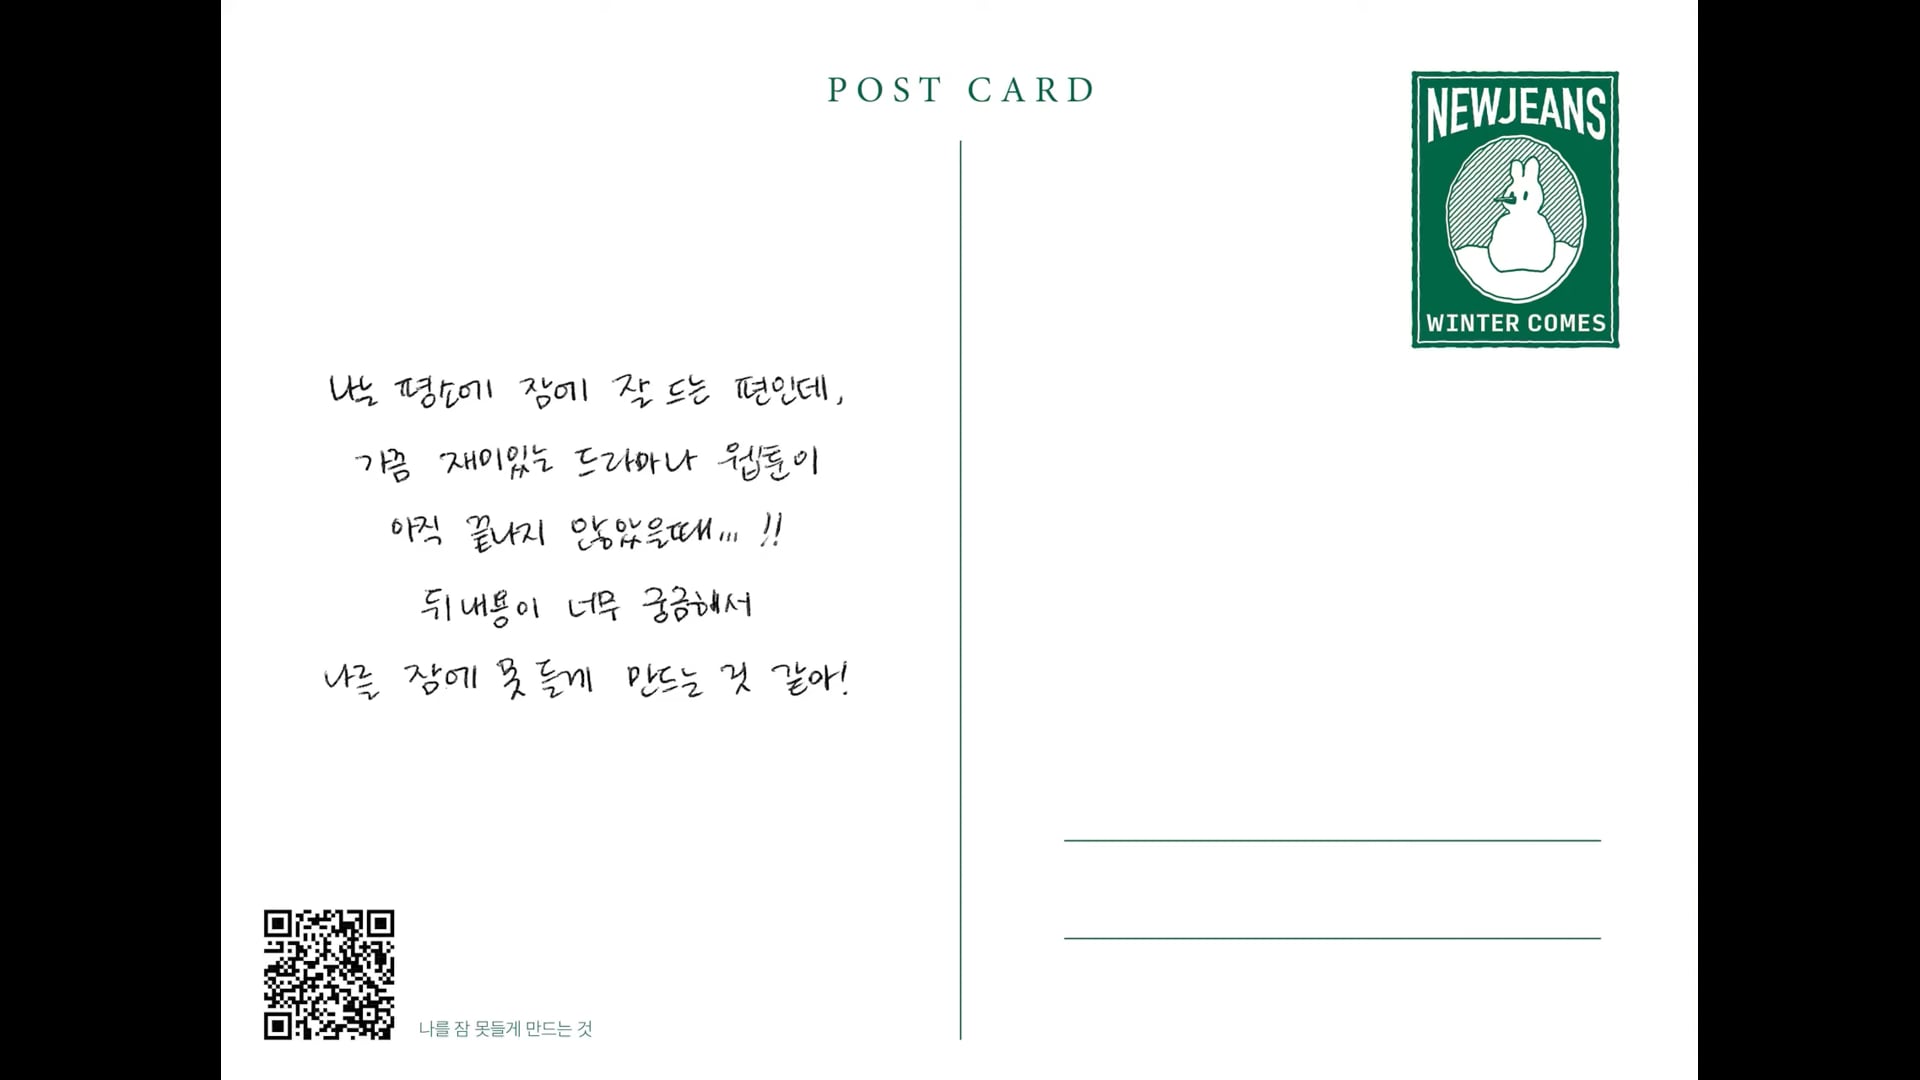 POST CARD
NEWJEANS
WINTER COMES
나는 평소에 잠에 잘 드는 편인데,
가끔 재미있는 드라마나 웹툰이
아직 끝나지 않았을때... !!
뒤 내용이 너무 궁금해서
나를 잠에 못 들게 만드는 것 같아!
나를 잠 못들게 만드는 것